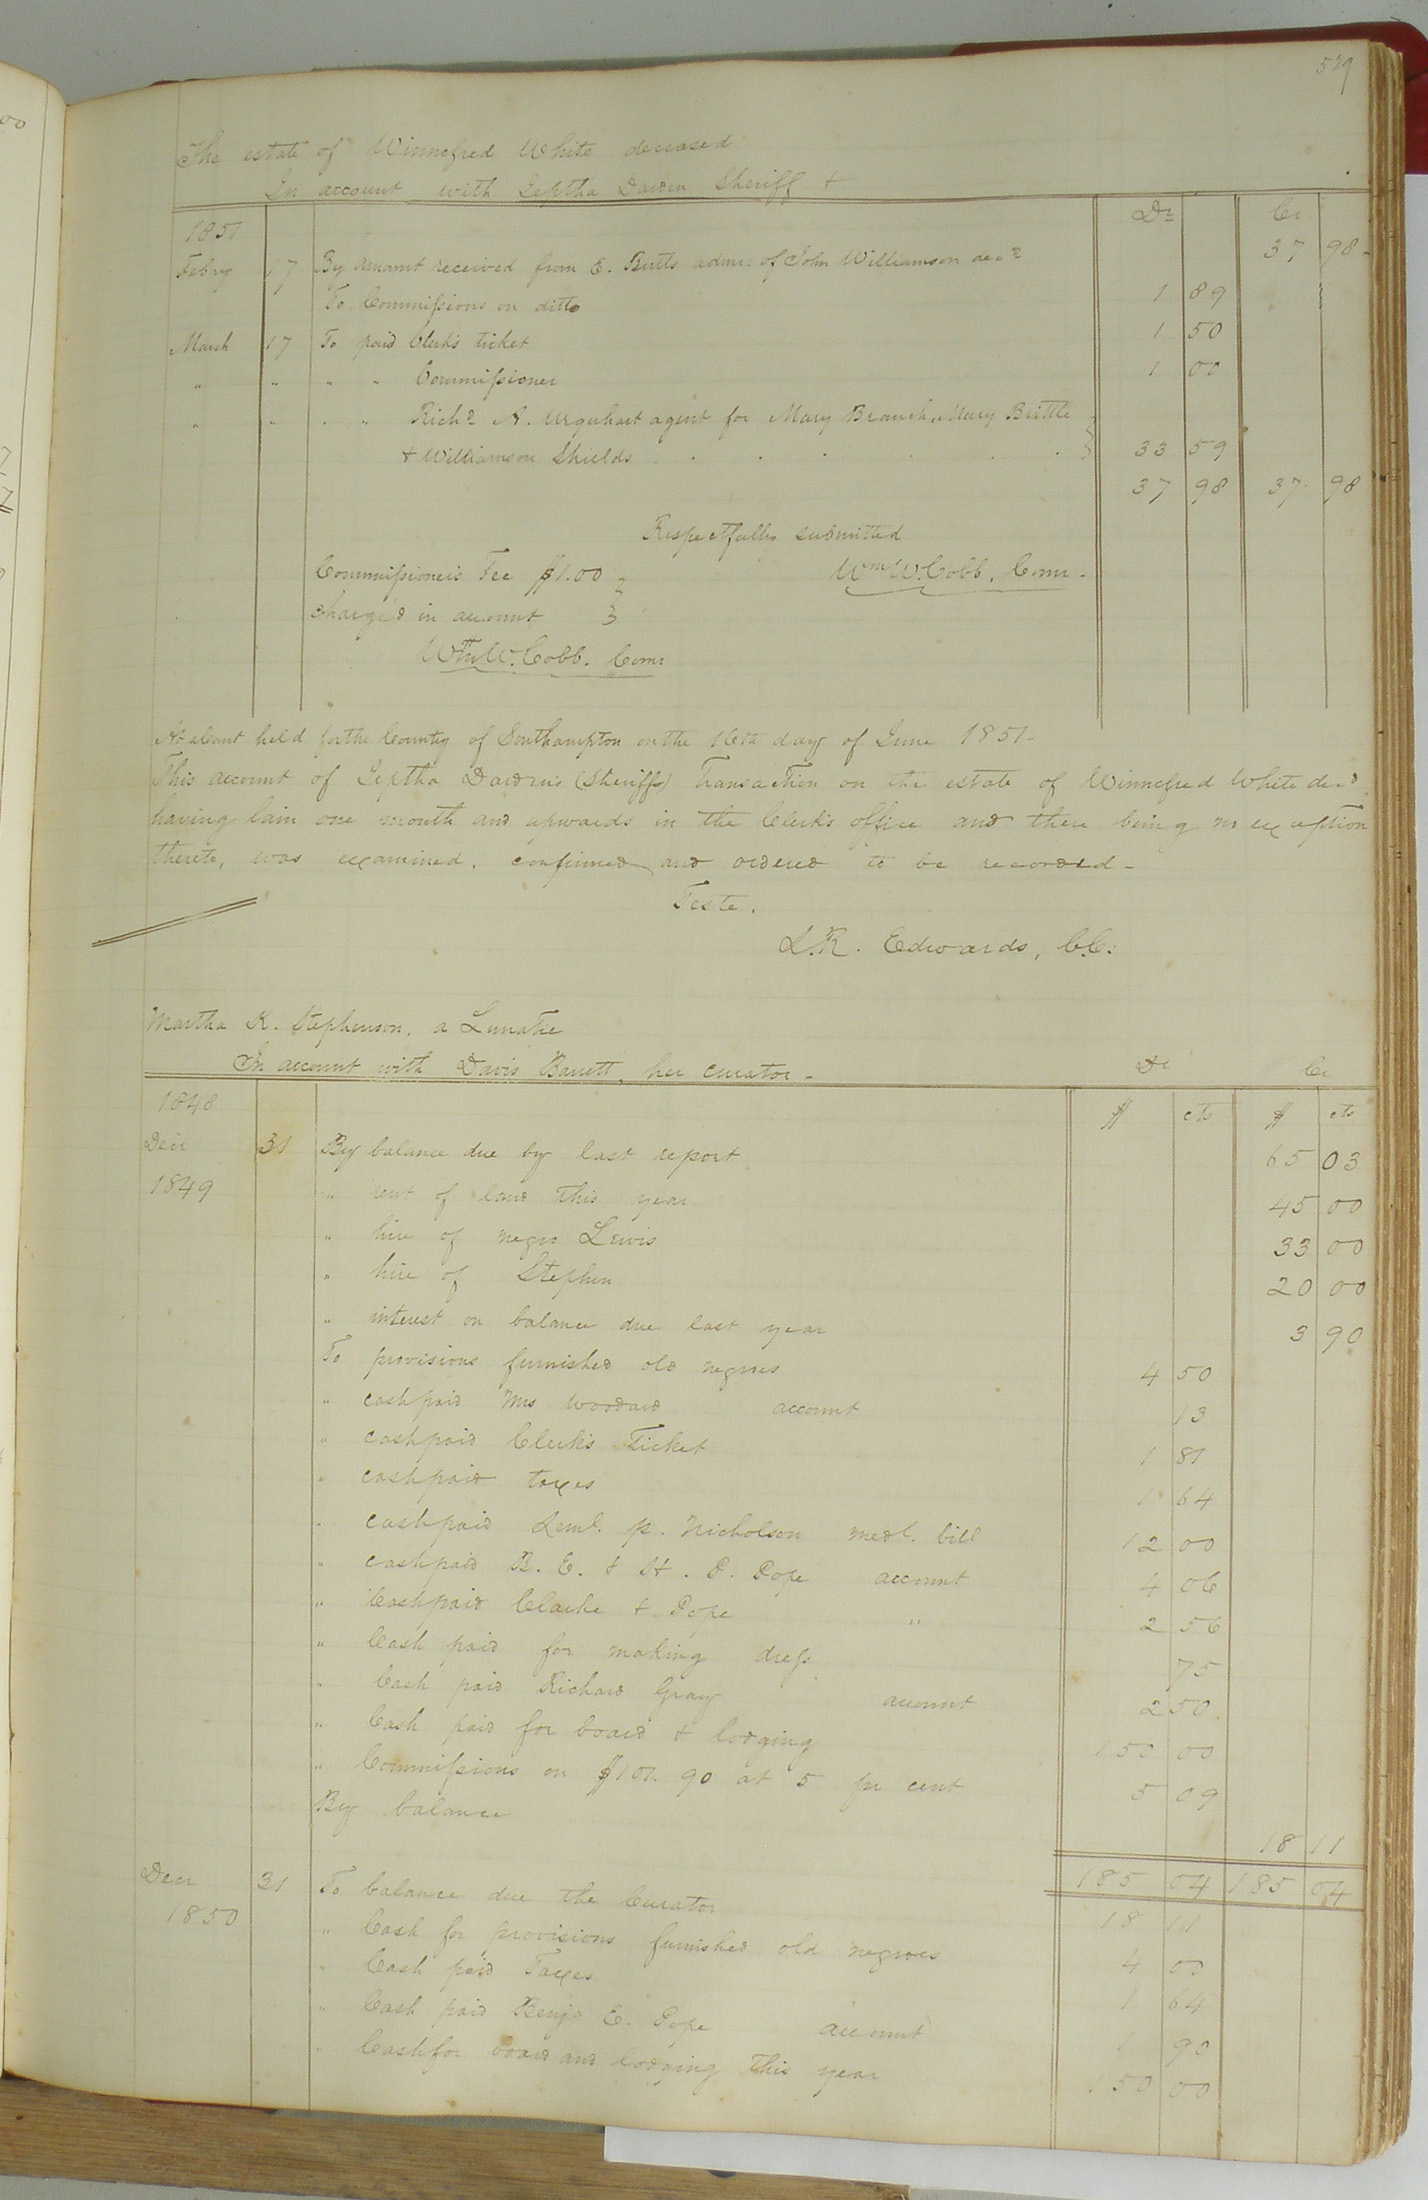 529
The estate of Winnefred White deceased
In account with Jeptha Darden Sheriff &
Dr Cr
1851
Febry 17 By amount received from E. Butts admr. of John Williamson decd 37 98
To Commissions on ditto 1 89
March 17 To paid Clerk's ticket 1 50
" " " " Commissioner 1 00
" " " " Richd A. Urquhart agent for Mary Branch, Mary Brittle
& Williamson Shields 33 59
37 98 37 98
Respectfully submitted
Commissioner's Fee $1.00 Wm W. Cobb, Comr
charged in account
Wm W. Cobb. Comr
At a Court held for the County of Southampton on the 16th day of June 1851-
This account of Jeptha Darden's (Sheriffs) Transaction on the estate of Winnefred White decd
having lain one month and upwards in the Clerk's office and there being no exception
thereto, was examined, confirmed and ordered to be recorded-
Teste.
L.R. Edwards, C.C.
Martha K. Stephenson, a Lunatic
In account with Davis Barrett, her curator - Dr Cr
1848 $ cts $ cts
Decr 31 By balance due by last report 65 03
1849 " rent of land this year 45 00
" hire of negro Lewis 33 00
" hire of Stephen 20 00
" interest on balance due last year 3 90
To provisions furnished old negroes 4 50
" cash paid Mrs Woodard account 13
" cash paid Clerk's Ticket 1 81
" cash paid taxes 1 64
" cash paid Leml. P. Nicholson medl. bill 12 00
" cash paid B. E. & H. D. Pope account 4 06
" Cash paid Clarke & Pope " 2 56
" Cash paid for making dress 75
" Cash paid Richard Gray account 2 50
" Cash paid for board & lodging 150 00
" Commissions on $101.90 at 5 pr cent 5 09
By balance 18 11
185 04 185 04
Decr 31 To balance due the Curator 18 11
1850 " Cash for provisions furnished old negroes 4 00
" Cash paid Taxes 1 64
" Cash paid Benja E. Pope account 1 90
" Cash for board and lodging this year 150 00